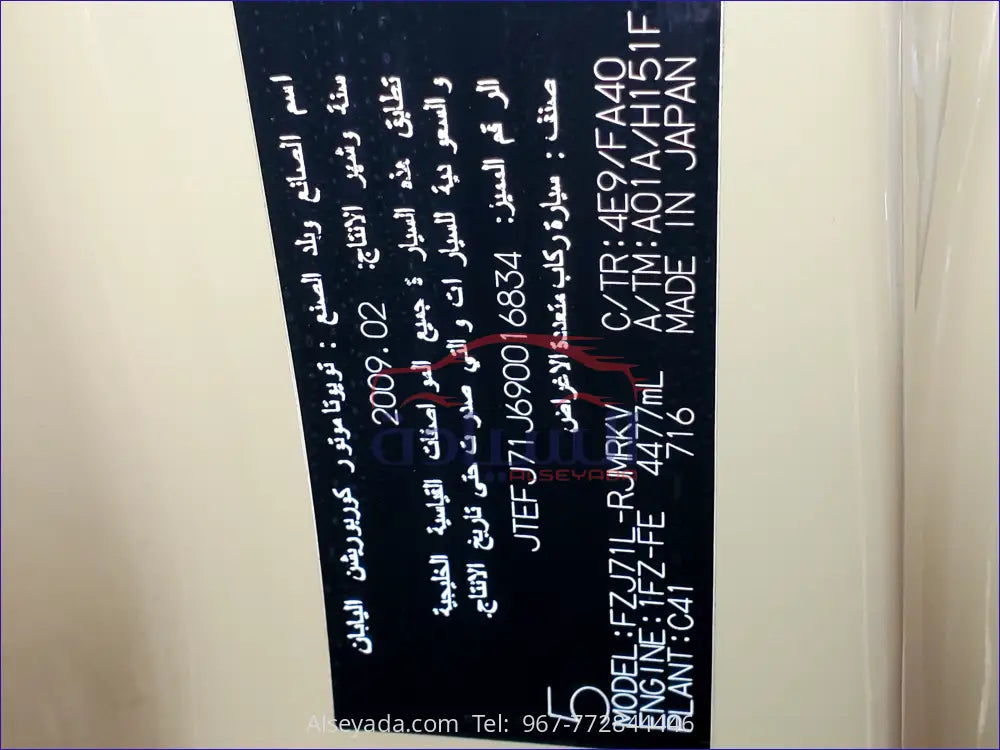 اسم الصانع وبلد الصنع : تويوتا موتور كوربوريشن اليابان
سنة وشهر الانتاج: 2009.02
تطابق هذه السيارة جميع المواصفات القياسية الخليجية
والسعودية للسيارات والتي صدرت حتى تاريخ الانتاج.
الرقم المميز: JTEFJ71J690016834
صنف : سيارة ركاب متعددة الاغراض
5
MODEL:FZJ71L-RJMRKV C/TR:4E9/FA40
ENGINE:1FZ-FE 4477mL A/TM:A01A/H151F
PLANT:C41 716 MADE IN JAPAN
السيادة
ALSEYADA
Alseyada.com Tel: 967-772844446